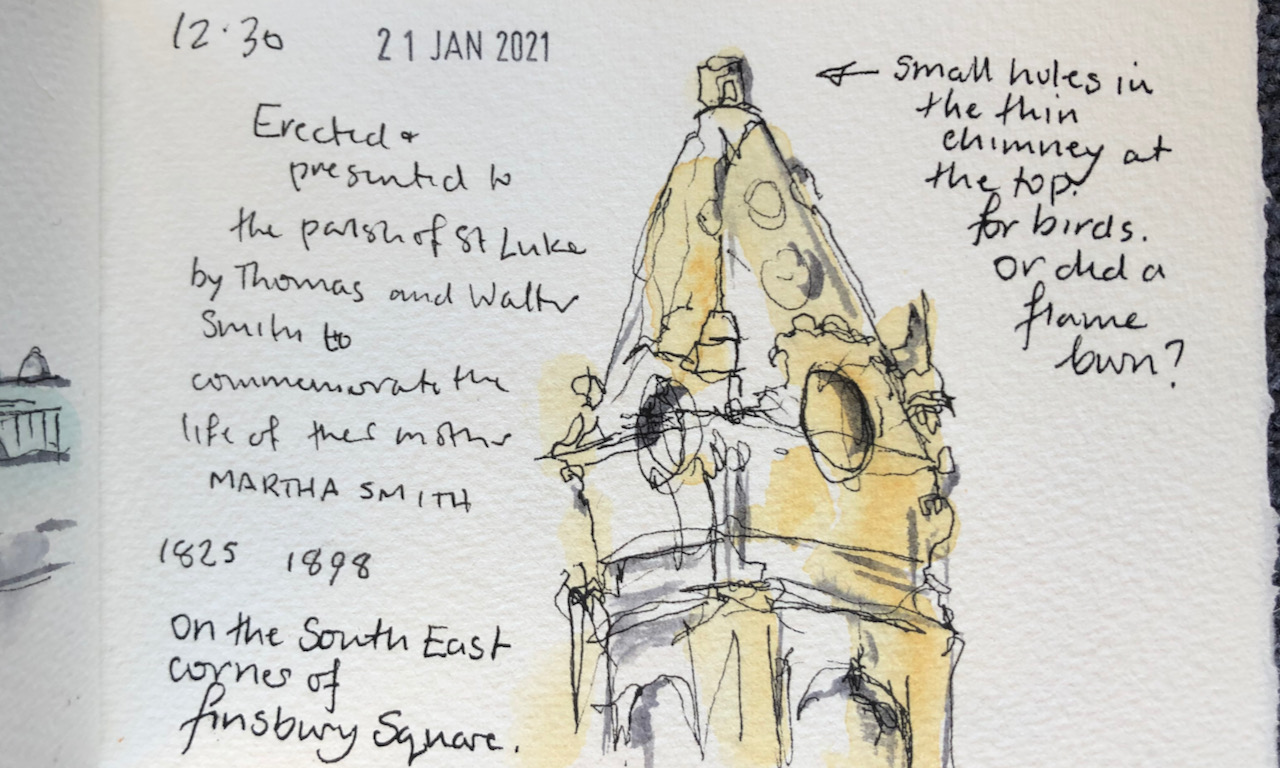 12.30
21 JAN 2021
Erected &
presented to
the parish of St Luke
by Thomas and Walter
Smith to
commemorate the
life of their mother
MARTHA SMITH
1825 1898
On the South East
corner of
Finsbury Square.
← Small holes in
the thin
chimney at
the top.
for birds.
Or did a
flame
burn?